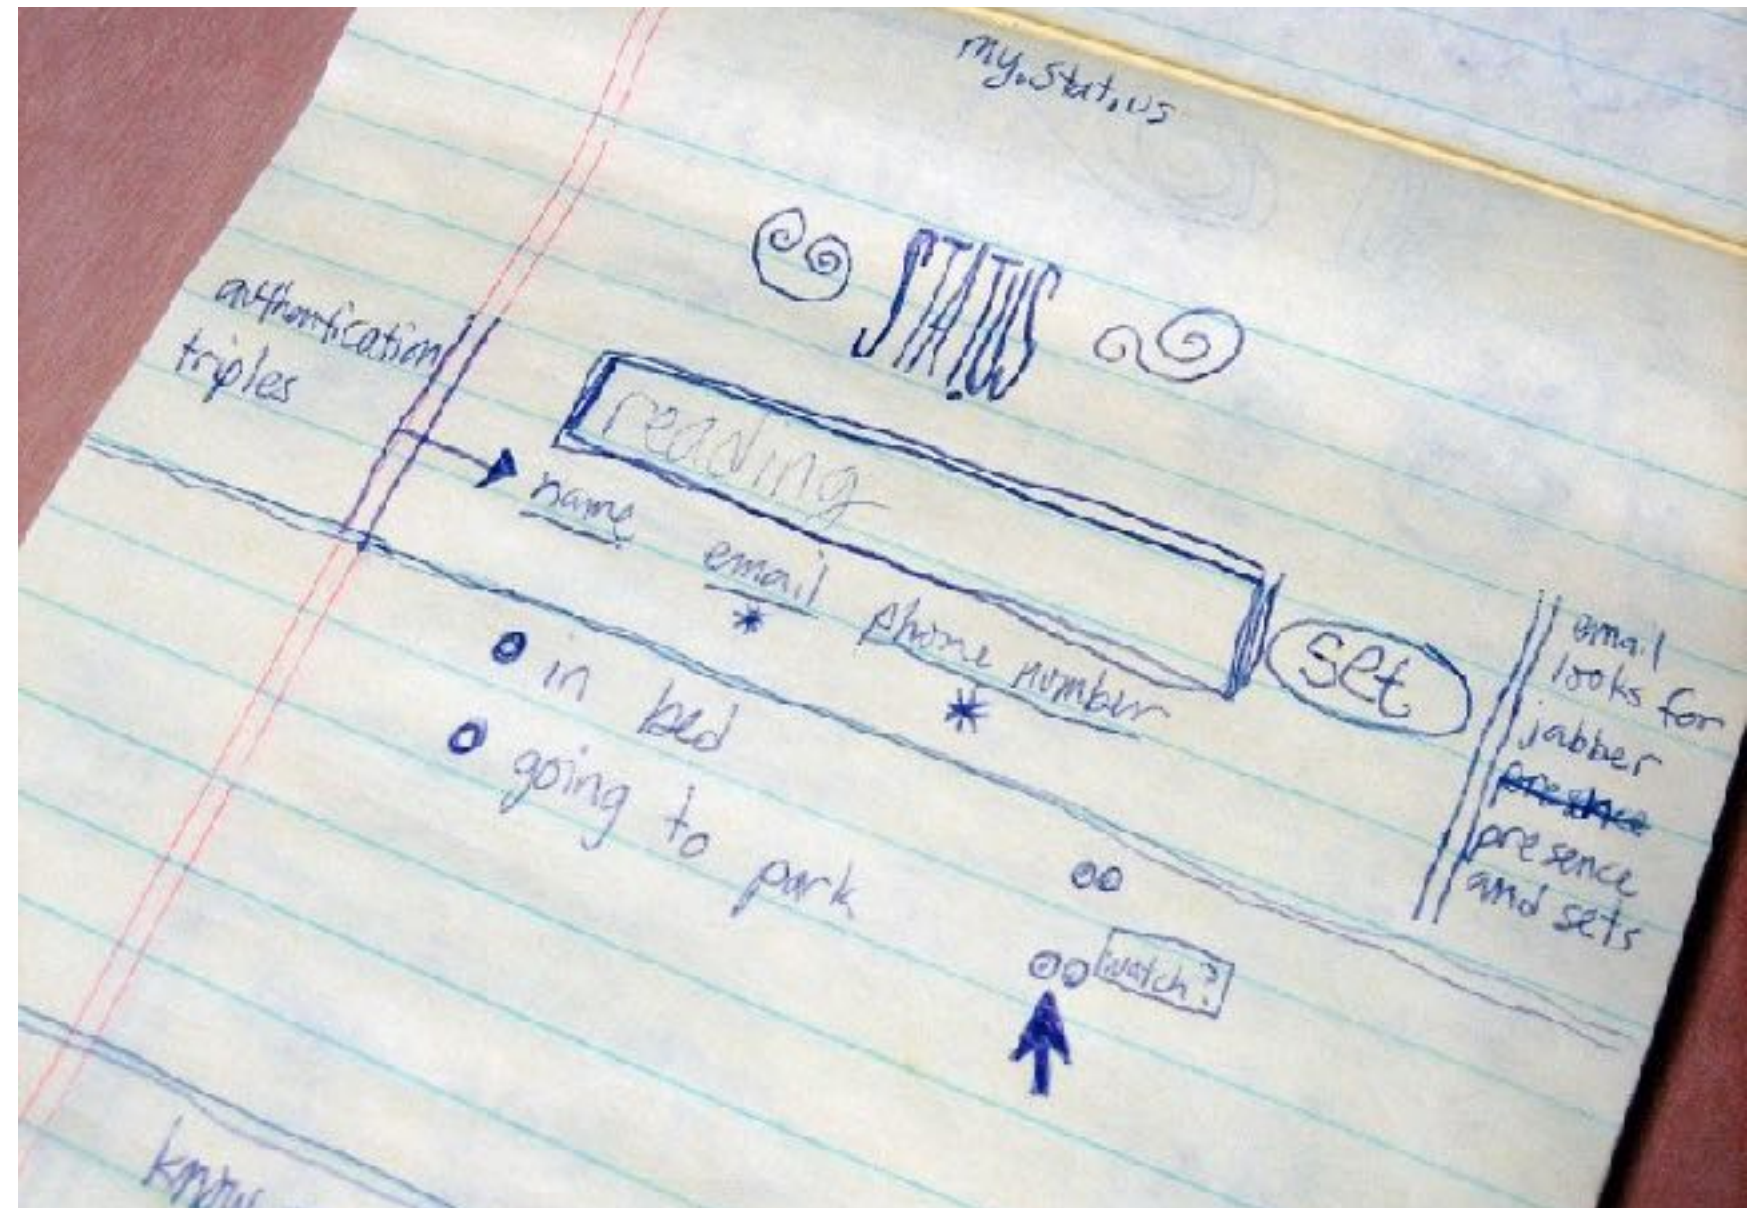 my.stat.us
STAT.US
authentication
triples
reading
name
email
phone number
set
email
looks for
jabber
presence
presence
and sets
in bed
going to park
watch?